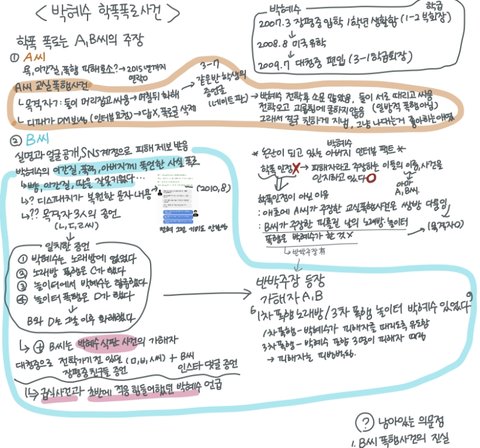 < 박혜수 학폭폭로사건 >
박혜수
학급
2007.3 장평중 입학 1학년 생활함 (1-2 부회장)
2008.8 미국유학
2009.7 대청중 편입 (3-1 학급회장)
학폭 폭로는 A,B씨의 주장
① A씨
욕, 이간질, 폭행 피해호소? → 2015년까지 연락함
A씨 교실폭행사건
↳ 목격자? : 둘이 머리잡고 싸움 → 며칠뒤 화해
↳ 디패가 DM보냄 (인터뷰 요청) → 답X, 폭로글 삭제
3-7
같은반 학생의
증언글
(네이트판)
→ 박혜수 전학후 소문 많았음, 둘이 서로 때리고 싸움
전학오고 괴롭힘에 굴하지않음 (일방적 폭행 아님)
그래서 결국 친하게 지냄, 그냥 나대는거 좋아하는애임
② B씨
실명과 얼굴공개 SNS계정으로 피해 제보 받음
박혜수의 이간질, 폭행, 아버지께 폭언한 사실 폭로
↳ 뺨, 이간질, 따돌 잘못했다…
↳ ? 디스패치가 복원한 문자 내용 →
(2010,8)
↳ ?? 목격자 3人의 증언
(L,I,Z씨)
일치한 증언
① 박혜수는 노래방에 없었다
② 노래방 폭행은 C가 했다
③ 놀이터에서 박혜수는 말렸었다
④ 놀이터폭행은 D가 했다
B와 D는 그 일 이후 화해했다
↳ ④ B씨는 박혜수 식판 사건의 가해자
대청중으로 전학가기 전 있던
장평중 친구들 증언
+ B씨
인스타 댓글 증언
↳ 급식사건과 초반에 적응 힘들어했던 박혜수 언급
박혜수
* 논란이 되고 있는 아버지 인터뷰 팩트 *
학폭 인정X → 피해자라고 주장하는 이들의 이름, 사건을
인지하고 있다O
아마
A,B씨
학폭인정이 아닌 이유
: 애초에 A씨가 주장한 교실폭행사건은 쌍방 다툼임
: B씨가 주장한 피흘린 날의 노래방, 놀이터
폭행은 박혜수가 한 것X
(목격자O)
↳ 반박주장有
반박주장 등장
가해자 A,B
"1차 폭행 노래방 / 3차 폭행 놀이터 박혜수 있었다"
1차폭행 - 박혜수가 피해자를 때리도록 유도함
3차폭행 - 박혜수 포함 3명이 피해자 때림
→ 피해자는 피범벅됨
? 남아있는 의문점
1. B씨 폭행사건의 진실